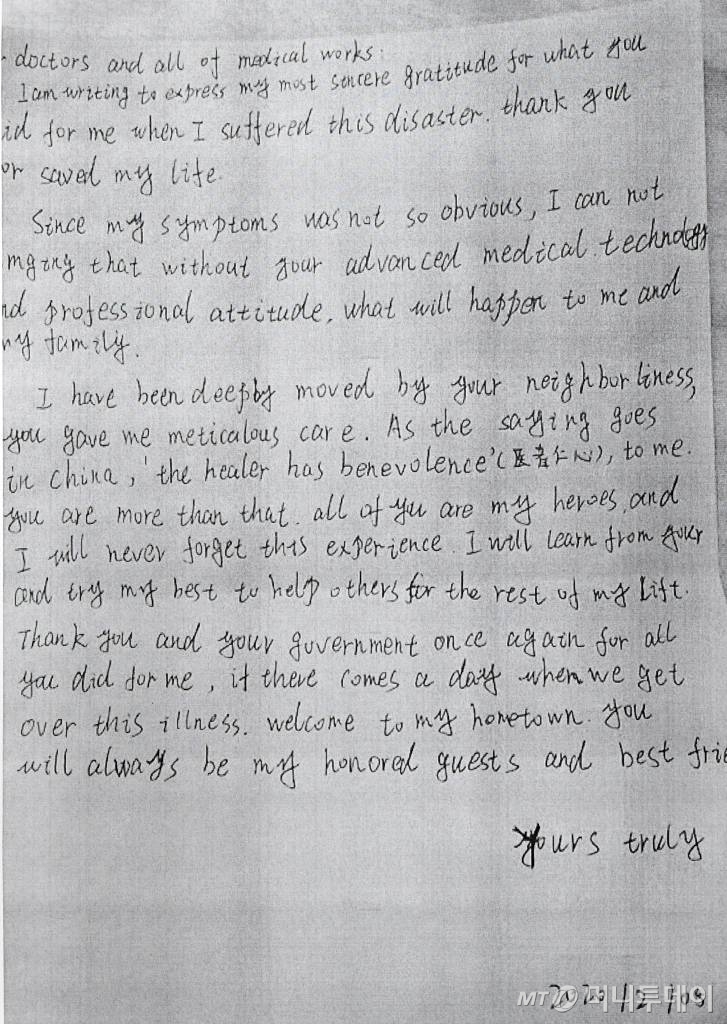 doctors and all of medical works:
I am writing to express my most sincere gratitude for what you
id for me when I suffered this disaster. thank you
or saved my life.
Since my symptoms was not so obvious, I can not
mging that without your advanced medical technology
nd professional attitude, what will happen to me and
ny family.
I have been deeply moved by your neighborliness,
you gave me meticalous care. As the saying goes
in China, 'the healer has benevolence'(医者仁心), to me.
you are more than that. all of yu are my heroes, and
I will never forget this experience. I will learn from your
and try my best to help others for the rest of my Lift.
Thank you and your government once again for all
you did for me, if there comes a day when we get
over this illness. welcome to my hometown. you
will always be my honored guests and best frie
yours truly
MT 머니투데이